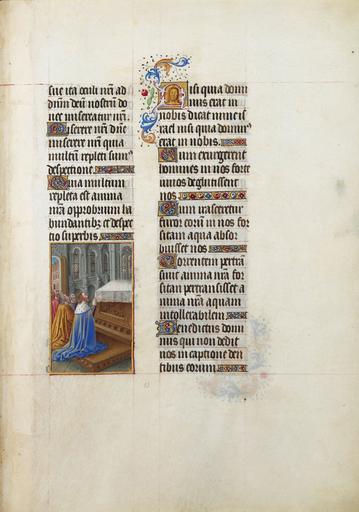 sue ita oculi nr̄i ad
dn̄um deū nostrū do
nec misereatur nr̄i.
Miserere nr̄i dn̄e
miserere nr̄i quia
multum repleti sum⁹
despectione.
Quia multum
repleta est anima
nr̄a opprobrium ha
bundantibꝫ et despec
tio superbis.
Nisi quia domi
nus erat in
nobis dicat nunc is
rael nisi quia domin⁹
erat in nobis.
Cum exurgerent
homines in nos forte
viuos deglutissent
nos
Cum irasceretur
furor eorū in nos for
sitam aqua absor
buisset nos
Torrentem pertrā
siuit anima nr̄a for
sitan pertransisset a
nima nr̄a aquam
intollerabilem
Benedictus domi
nus qui non dedit
nos in captione den
tibus eorum